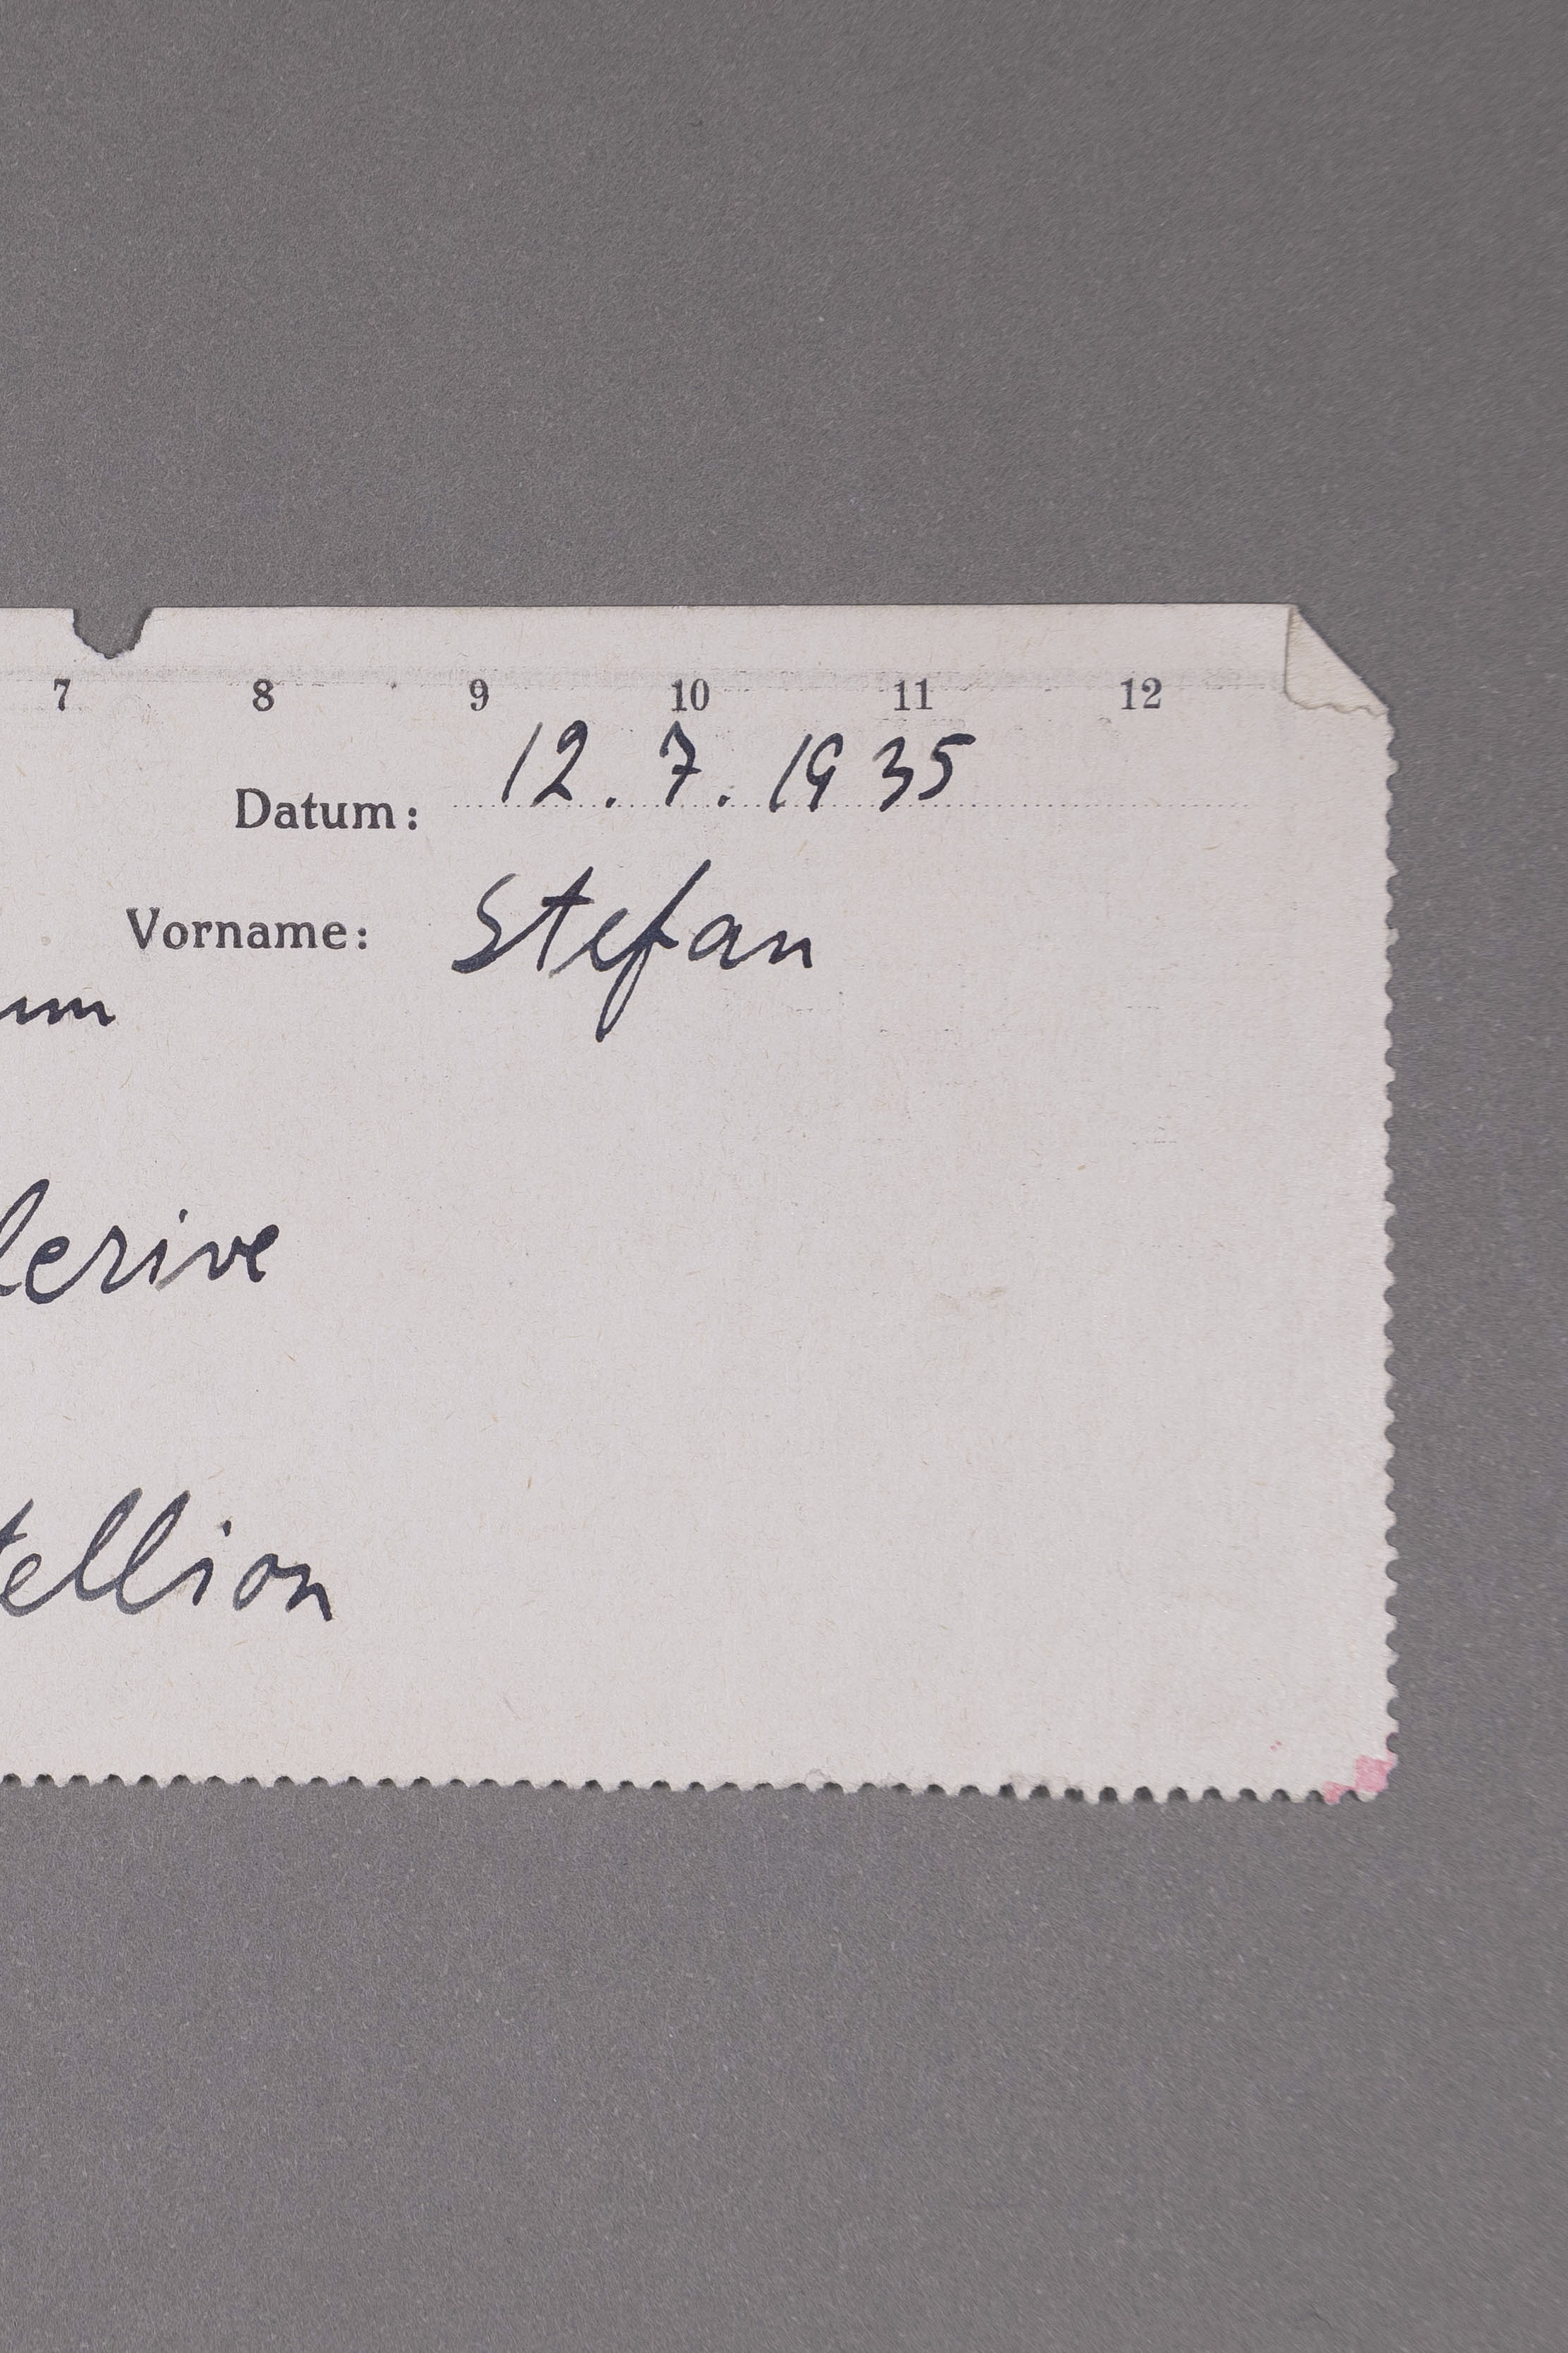 7 8 9 10 11 12
Datum: 12.7.1935
Vorname: Stefan
um
lerive
tellion